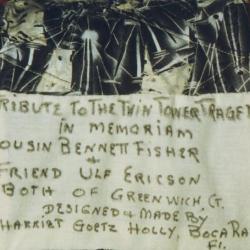 TRIBUTE TO THE TWIN TOWER TRAGE
IN MEMORIAM
COUSIN BENNETT FISHER
+
FRIEND ULF ERICSON
BOTH OF GREENWICH, CT.
DESIGNED & MADE BY
HARRIET GOETZ HOLLY, BOCA RA
Fl.